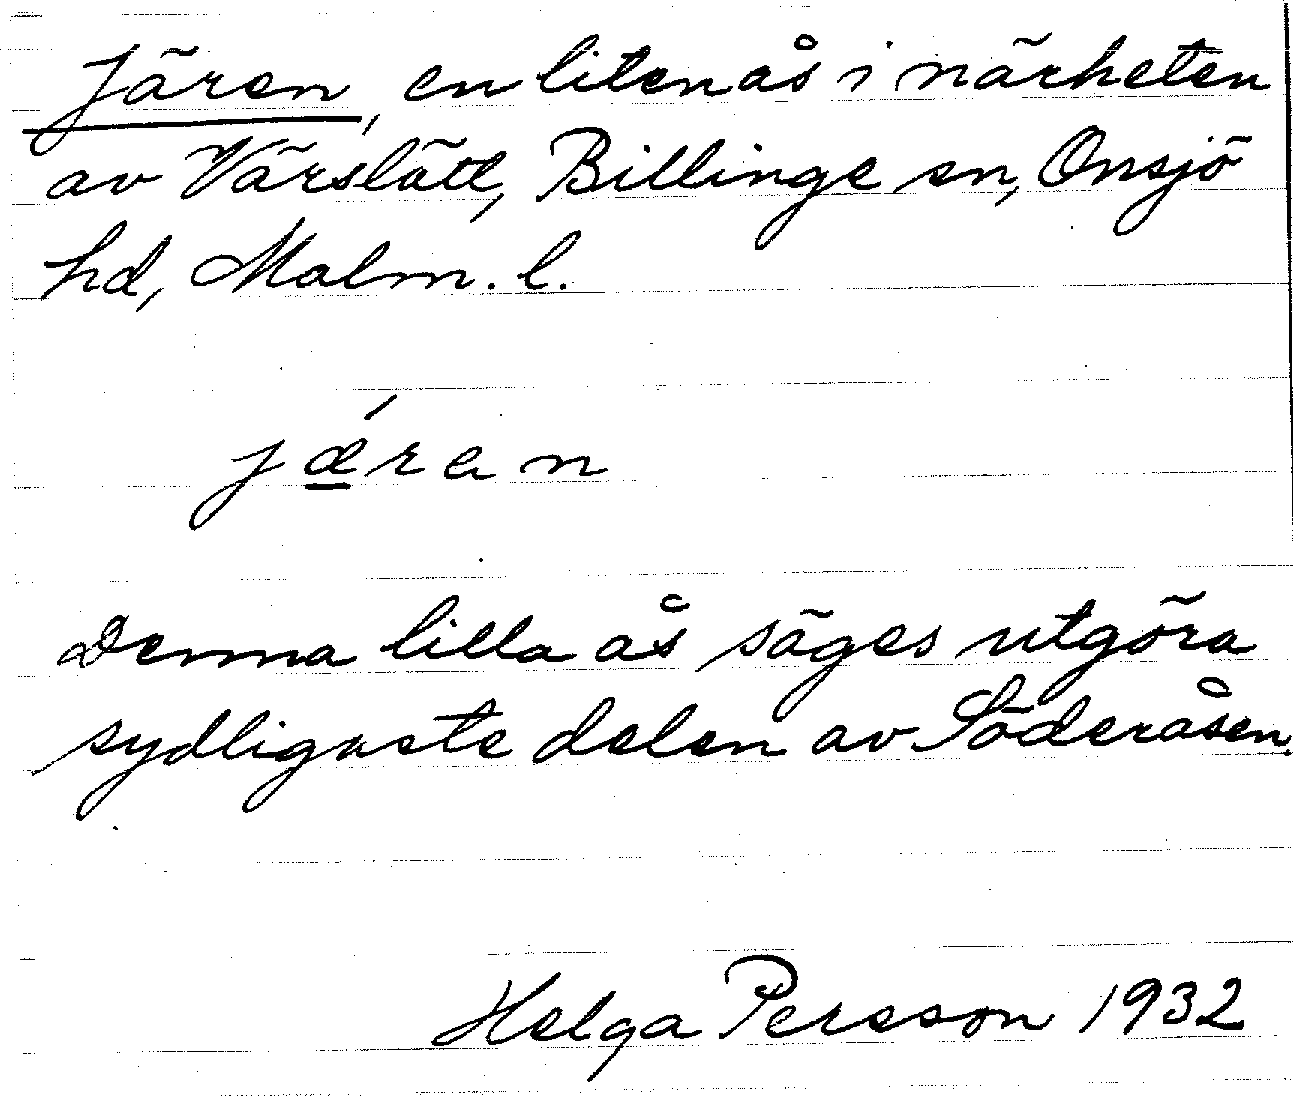 Jären, en liten ås i närheten
av Värslätt, Billinge sn, Onsjö
hd, Malm. l.
jǽran
Denna lilla ås säges utgöra
sydligaste delen av Söderåsen.
Helga Persson 1932